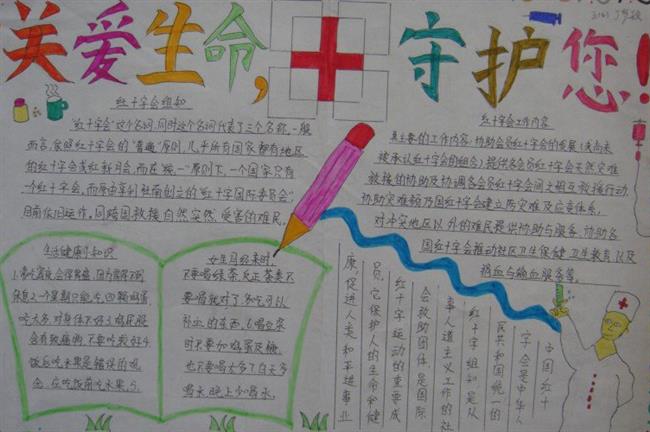 关爱生命,十守护您!
红十字会组和
"红十字会"这个名词,同时这个名词代表了三个名称,一般
而言,依照红十字会的"普遍"原则,几乎所有国家都有地区
的红十字会或红新月会,而在"统一"原则下,一个国家只有
一个红十字会,而原由享利杜南创立的"红十字国际委员会"
目前依旧运作,同时国救援自然突然,受害的难民。
红十字会工作内容
其主要的工作内容:协助会员红十字会的发展(或尚未
被承认红十字会的组合)提供各会员红十字会天然灾难
救援的协助及协调各会员红十字会间之相互救援行动
协助灾难前乃国红十字会建立防灾难及应变体系,
对冲突地区以外的难民是供协助与服务,协助各
国红十字会推动社区卫生保健,卫生教育,以及
捐血与输血服务等。
生活健康小知识
吃太多,对身体不好3.鸡屁股
会有致癌物,不要吃较好4.
饭后吃水果是错误的观
念,应吃饭前吃水果,5.
女生月经来时,
不要喝绿茶,反正茶类不
要喝就对了,多吃可以
补血的东西,6.喝豆浆
时不要加鸡蛋及糖,
也不要喝太多7.白天多
喝水,晚上少喝水,
中国红十
字会是中华人
民共和国统一的
红十字组织是从
事人道主义工作的社
会救助团体是国际
红十字运动的重要成
员,它保护人的生命和健
康,促进人类和平进事业